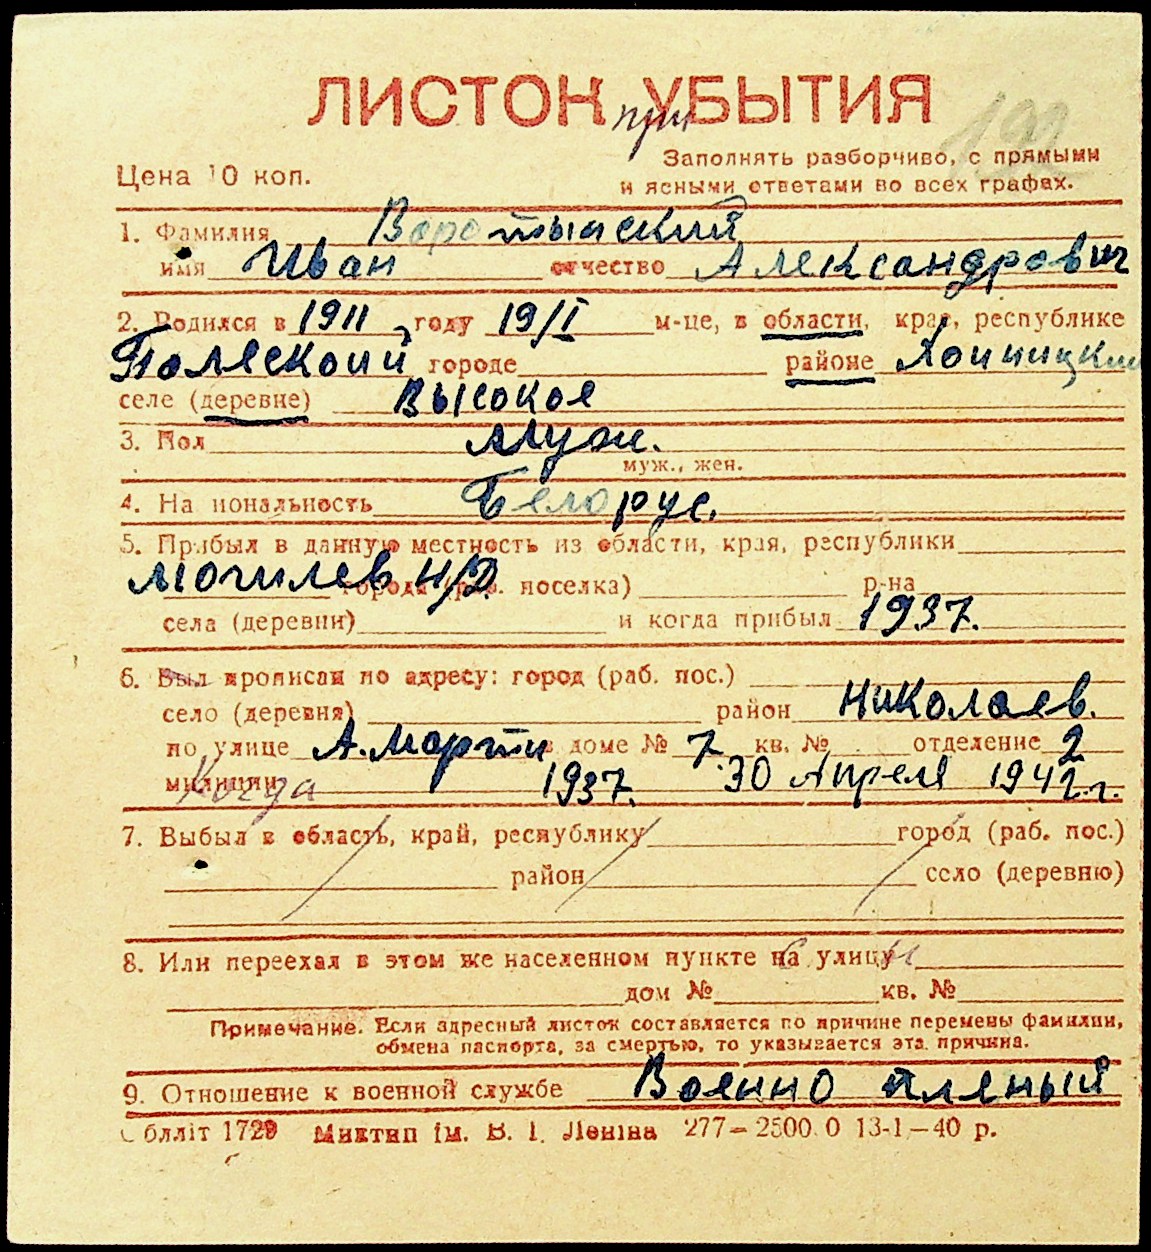 ЛИСТОК при УБЫТИЯ
192
Цена 10 коп.
Заполнять разборчиво, с прямыми
и ясными ответами во всех графах.
1. Фамилия Воротынский
имя Иван отчество Александрович
2. Родился в 1911 году 19/I м-це, в области, крае, республике
Полеской городе районе Хойницким
селе (деревне) Высокое
3. Пол Муж.
муж., жен.
4. Национальность Белорус.
5. Прибыл в данную местность из области, края, республики
Могилев н/Д. города (раб. поселка) р-на
села (деревни) и когда прибыл 1937.
6. Был прописан по адресу: город (раб. пос.)
село (деревня) район Николаев.
по улице А. Марти в доме № 7. кв. № отделение 2
милиции Когда 1937. 30 Апреля 1942 г.
7. Выбыл в область, край, республику город (раб. пос.)
район село (деревню)
8. Или переехал в этом же населенном пункте на улицу
дом № кв. №
Примечание. Если адресный листок составляется по причине перемены фамилии,
обмена паспорта, за смертью, то указывается эта причина.
9. Отношение к военной службе Военно пленый
Облліт 1729 Миктип ім. В. І. Леніна 277—2500.0 13-1—40 р.